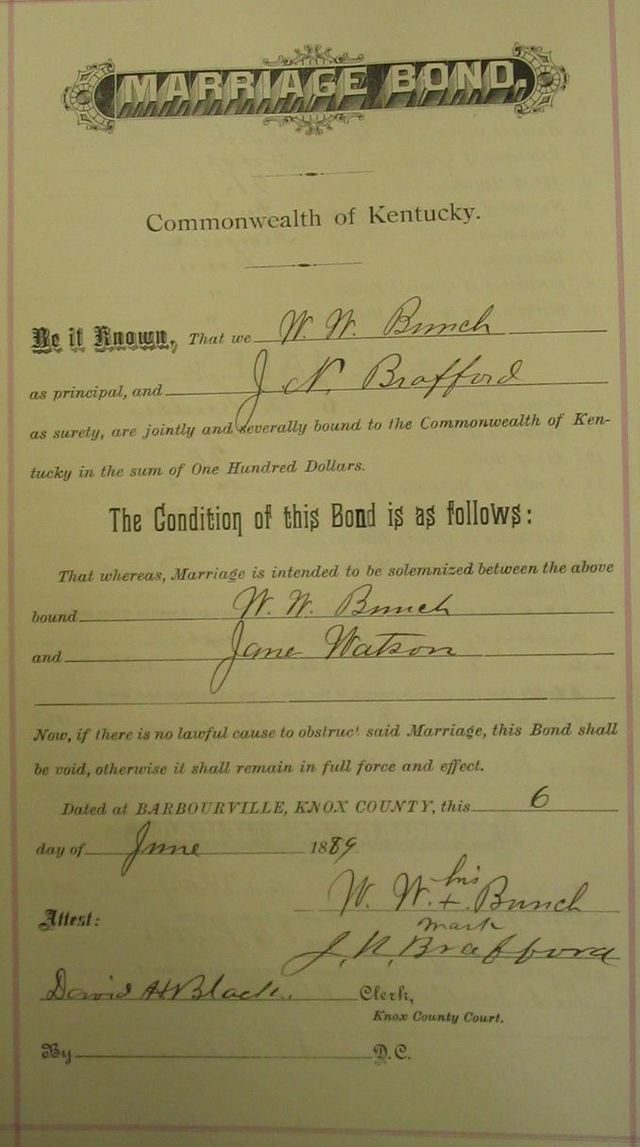 MARRIAGE BOND,
Commonwealth of Kentucky.
Be it Known, That we W. W. Bunch
as principal, and J N. Brafford
as surety, are jointly and severally bound to the Commonwealth of Ken-
tucky in the sum of One Hundred Dollars.
The Condition of this Bond is as follows:
That whereas, Marriage is intended to be solemnized between the above
bound W. W. Bunch
and Jane Watson
Now, if there is no lawful cause to obstruct said Marriage, this Bond shall
be void, otherwise it shall remain in full force and effect.
Dated at BARBOURVILLE, KNOX COUNTY, this 6
day of June 1889
his
W. W. + Bunch
mark
Attest:
J. N. Brafford
David H Black. Clerk,
Knox County Court.
By D.C.